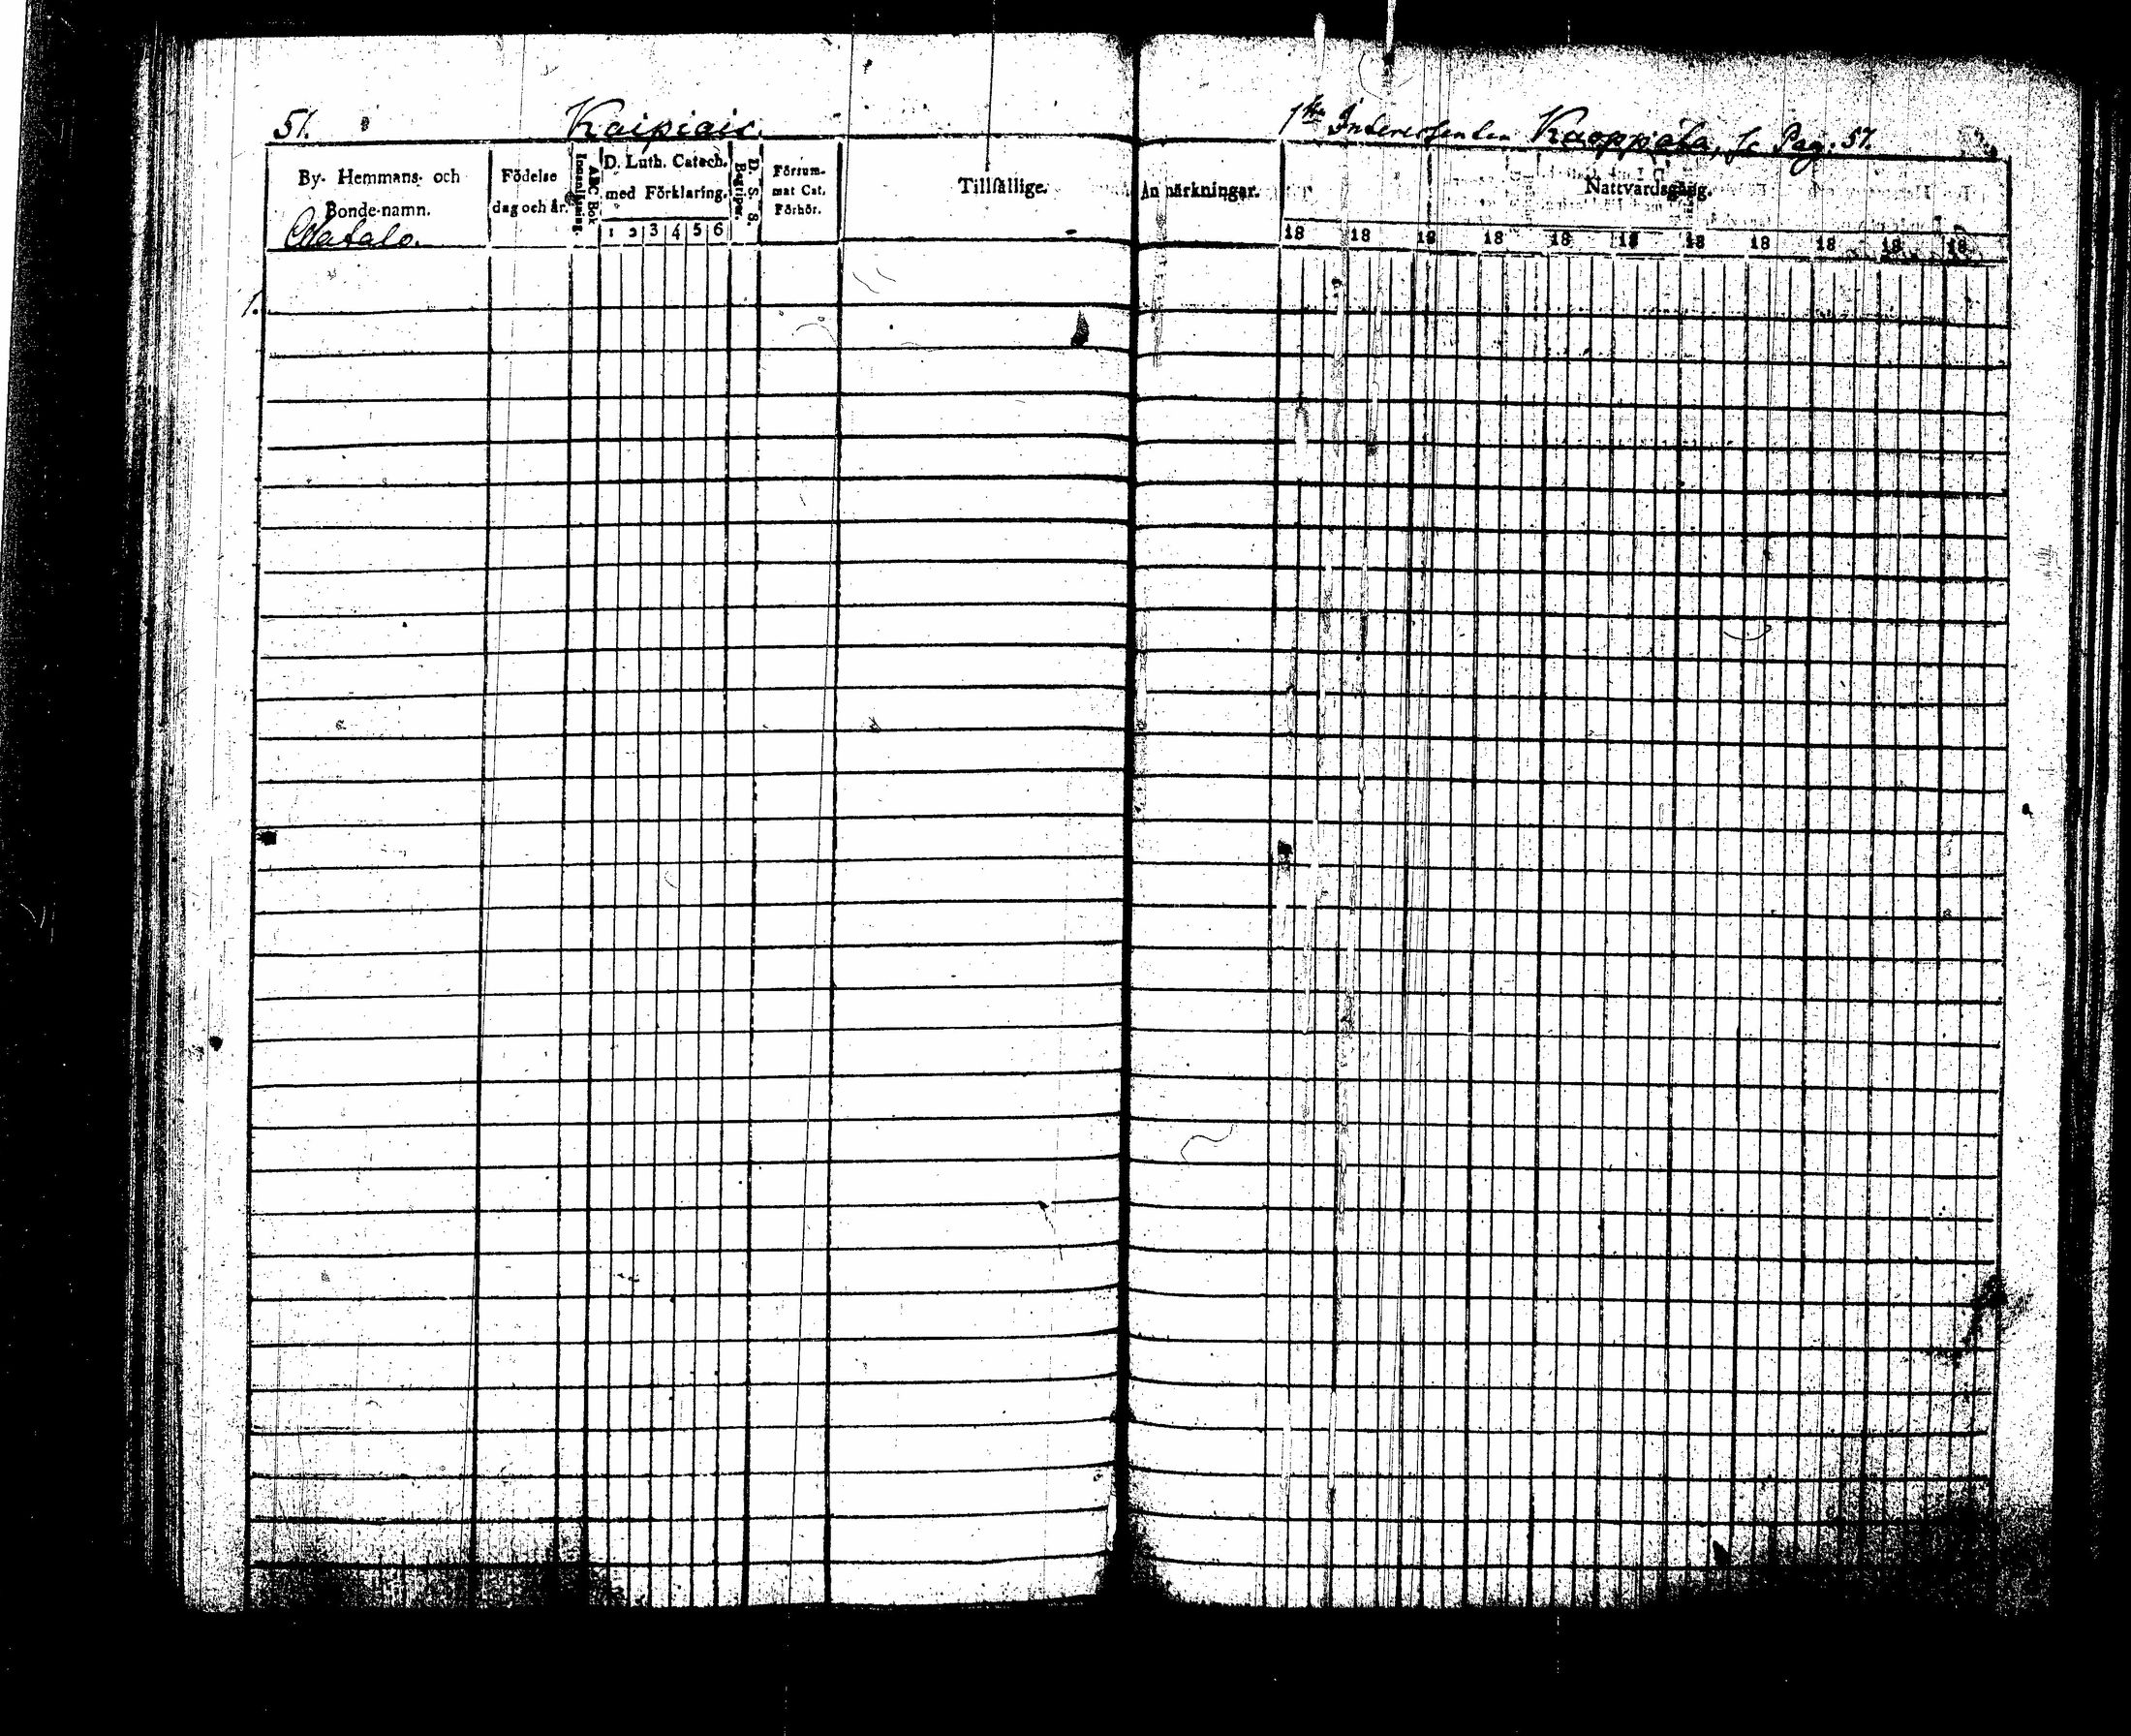 51. Kaipiais.
1sta Interessenten Kaoppiala, se Pag. 57.
By- Hemmans- och Bonde-namn.
Födelse dag och år.
ABC Bok
Innanläsning.
D. Luth. Catech. med Förklaring.
1 2 3 4 5 6
D. S. S. Begriper.
Försum-
mat Cat.
Förhör.
Tillfällige
Anmärkningar.
Nattvardsgång.
18 18 18 18 18 18 18 18 18 18 18
1.